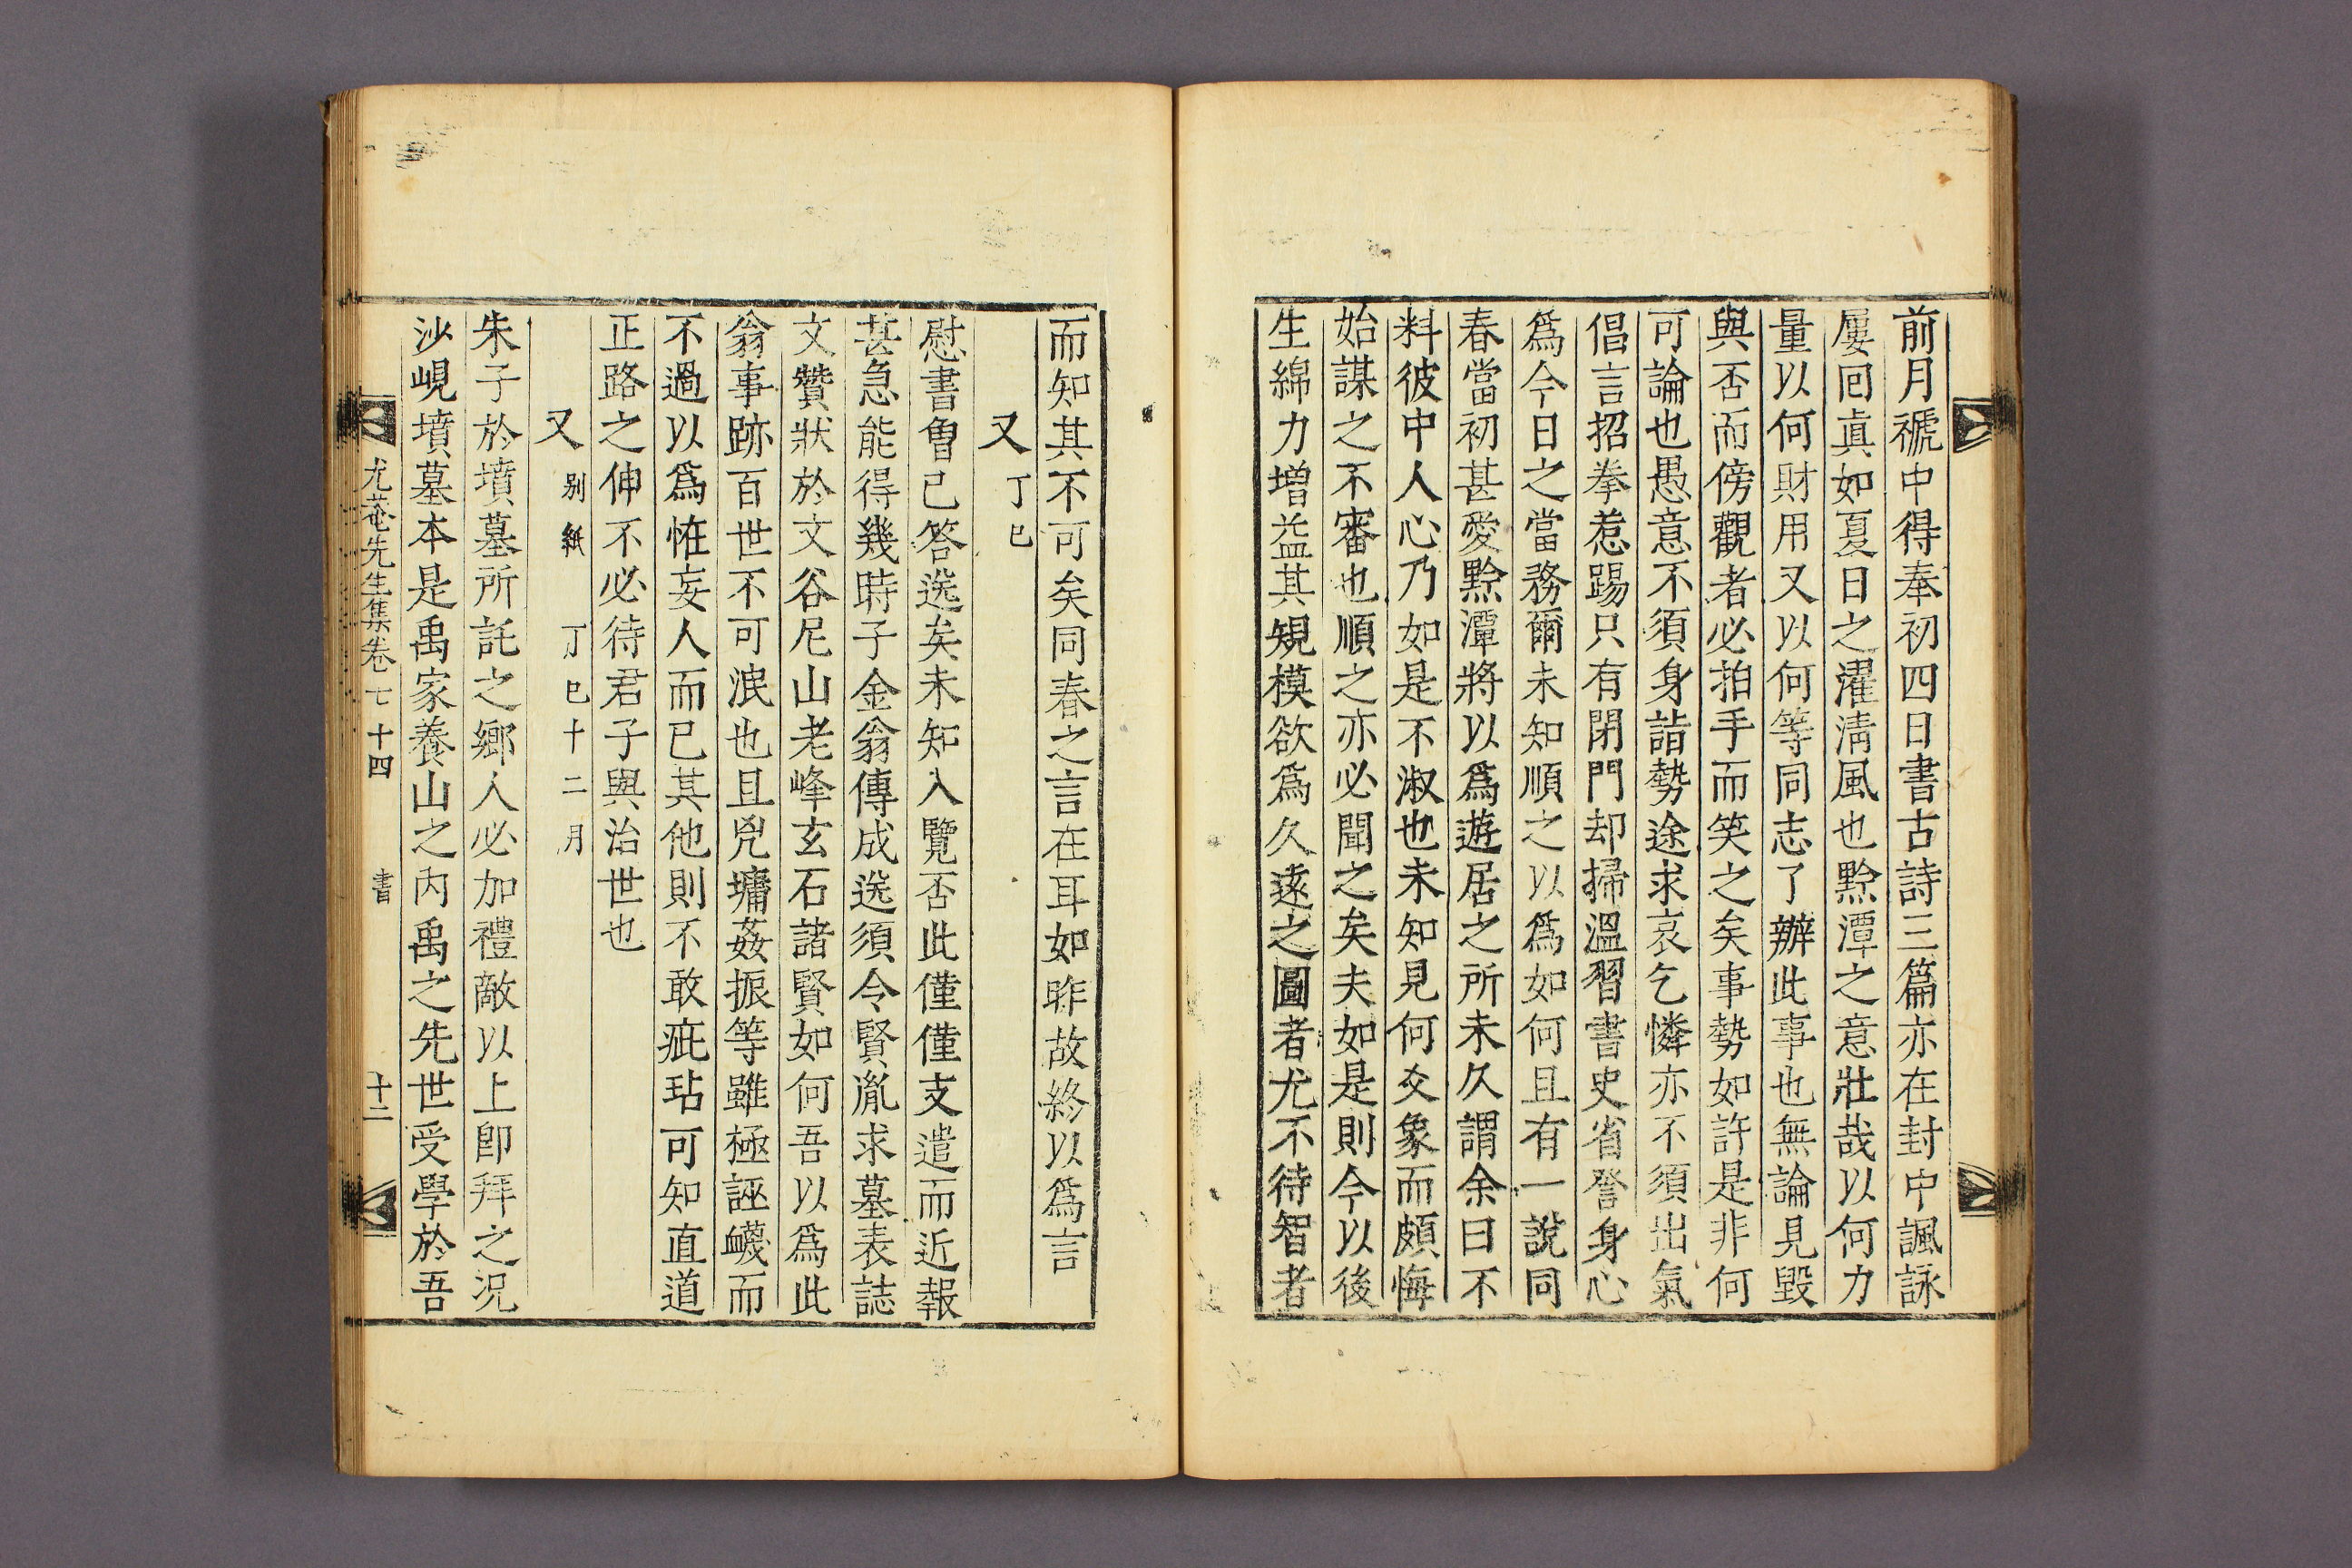 前月禠中得奉初四日書古詩三篇亦在封中諷詠
屢回眞如夏日之濯淸風也黥潭之意壯哉以何力
量以何財用又以何等同志了辦此事也無論見毀
與否而傍觀者必拍手而笑之矣事勢如許是非何
可論也愚意不須身詣勢途求哀乞憐亦不須出氣
倡言招拳惹踢只有閉門却掃溫習書史省詧身心
爲今日之當務爾未知順之以爲如何且有一說同
春當初甚愛黥潭將以爲遊居之所未久謂余曰不
料彼中人心乃如是不淑也未知見何爻象而頗悔
始謀之不審也順之亦必聞之矣夫如是則今以後
生綿力增益其䂓模欲爲久遠之圖者尤不待智者
而知其不可矣同春之言在耳如昨故終以爲言
又 丁巳
慰書曾已答送矣未知入覽否此僅僅支遣而近報
甚急能得幾時子金翁傳成送須令賢胤求墓表誌
文贊狀於文谷尼山老峰玄石諸賢如何吾以爲此
翁事跡百世不可泯也且兇墉姦振等雖極誣衊而
不過以爲恠妄人而已其他則不敢疵玷可知直道
正路之伸不必待君子與治世也
又 別紙 丁巳十二月
朱子於墳墓所託之鄕人必加禮敵以上卽拜之况
沙峴墳墓本是禹家養山之內禹之先世受學於吾
尤菴先生集卷七十四 書 十二